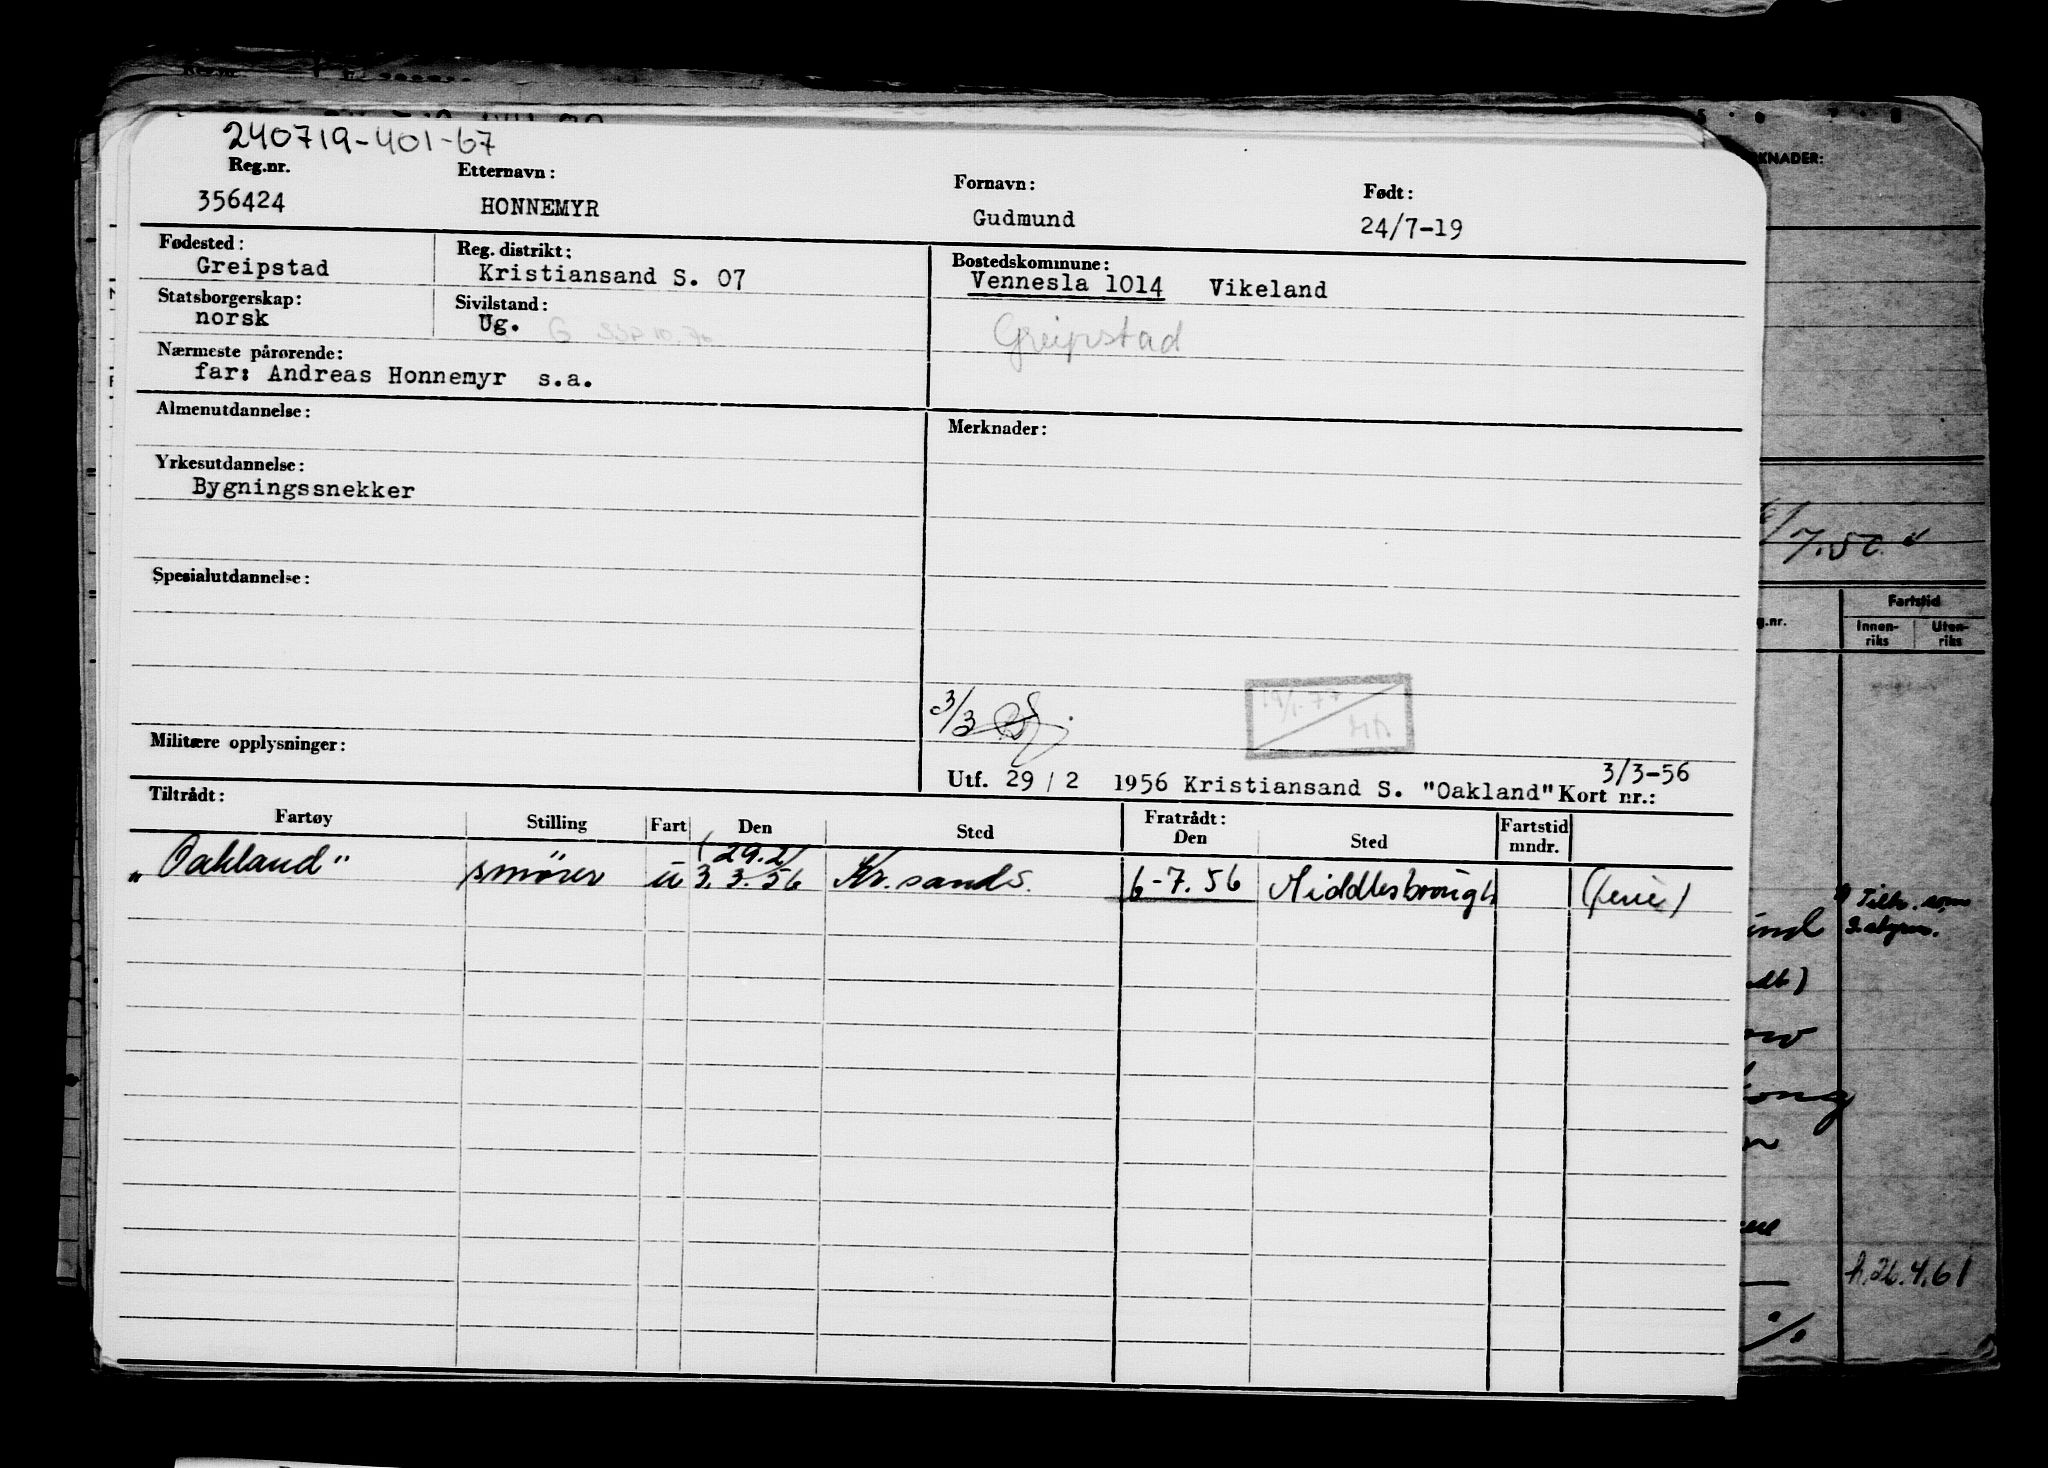 240719-401-67
Reg.nr. Etternavn: Fornavn: Født:
356424 HONNEMYR Gudmund 24/7-19
Fødested: Reg. distrikt: Bostedskommune:
Greipstad Kristiansand S. 07 Vennesla 1014 Vikeland
Statsborgerskap: Sivilstand:
norsk Ug. G
Greipstad
Nærmeste pårørende:
far: Andreas Honnemyr s.a.
Almenutdannelse: Merknader:
Yrkesutdannelse:
Bygningssnekker
Spesialutdannelse:
3/3
Militære opplysninger:
3/3-56
Utf. 29 / 2 1956 Kristiansand S. "Oakland" Kort nr.:
Tiltrådt: Fratrådt:
Fartøy Stilling Fart Den Sted Den Sted Fartstid mndr.
(29.2)
"Oakland" smører u 3.3.56 Kr.sand S. 6-7.56 Middlesbrough (ferie)
KNADER:
/7.50
Fartstid
g.nr. Innen-riks Uten-riks
Tiltr. som
2. styrm.
h.26.4.61